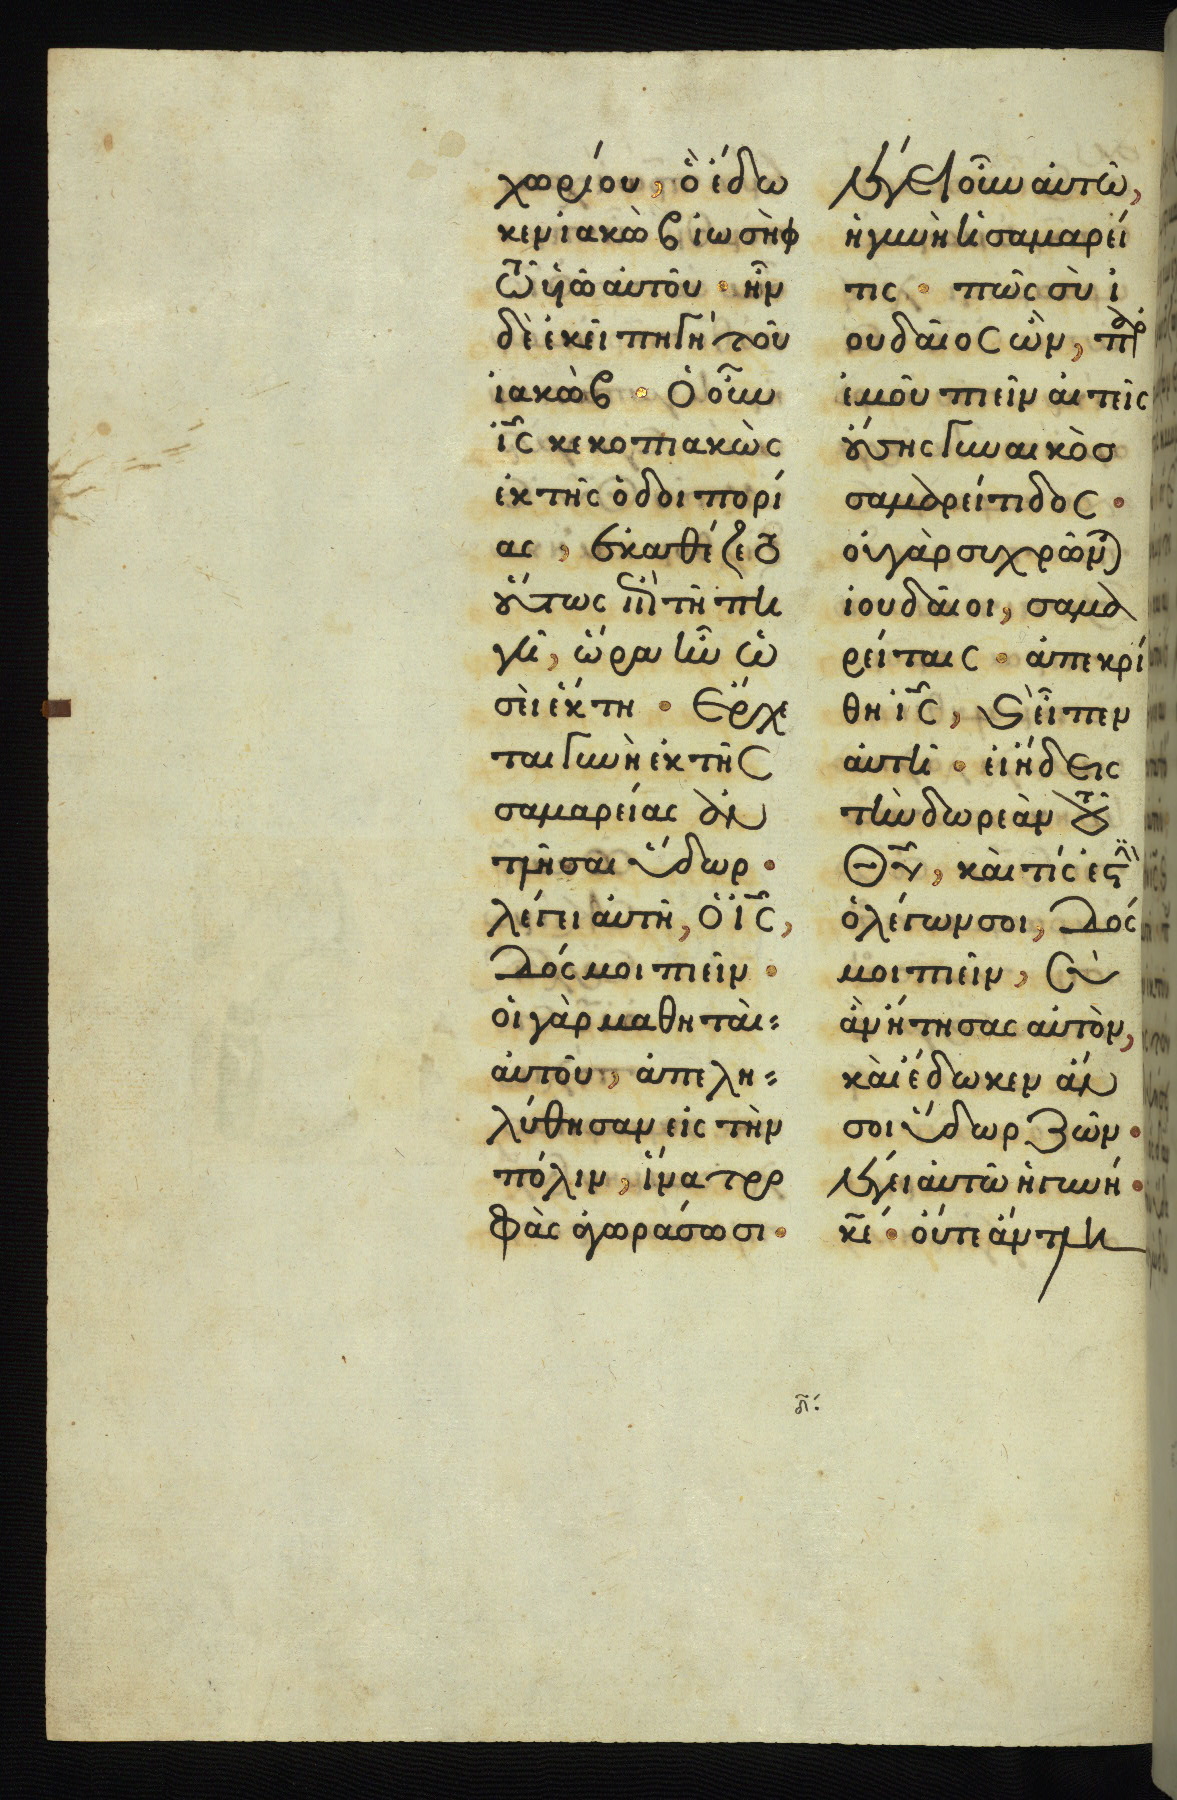 χωρίου, ὃ ἔδω
κεν ἰακὼβ ἰωσὴφ
τῶ υἱῶ αὐτοῦ · ἦν
δὲ ἐκεῖ πηγὴ τοῦ
ἰακώβ · Ὁ οὖν
ἰς κεκοπιακὼς
ἐκ τῆς ὁδοιπορί
ας, ἐκαθέζετο
οὕτως ἐπὶ τῆ πη
γῆ, ὥρα ἦν ὡ
σεὶ ἕκτη · Ἔρχε
ται γυνὴ ἐκ τῆς
σαμαρείας ἀν
τλῆσαι ὕδωρ ·
λέγει αὐτῆ, ὁ ἰς,
Δός μοι πιεῖν ·
οἱ γὰρ μαθηταὶ=
αὐτοῦ, ἀπελη=
λύθησαν εἰς τὴν
πόλιν, ἵνα τρο
φὰς ἀγωράσωσι ·
λέγει οὖν αὐτῶ,
ἡ γυνὴ ἡ σαμαρεί
τις · πῶς σὺ ἰ
ουδαῖος ὢν, παρ
ἐμοῦ πιεῖν αἰτεῖς
οὔσης γυναικὸσ
σαμαρείτιδος ·
οὐ γὰρ συχρῶντ
ἰουδαῖοι, σαμα
ρείταις · ἀπεκρί
θη ἰς, καὶ εἶπεν
αὐτῆ · εἰ ἤδεις
τὴν δωρεὰν τοῦ
Θυ, καὶ τίς ἐστιν
ὁ λέγων σοι, Δός
μοι πιεῖν, Σὺ
ἂν ἤτησας αὐτὸν,
καὶ ἔδωκεν ἄν
σοι ὕδωρ ζῶν ·
λέγει αὐτῶ ἡ γυνή ·
κε · οὔτε ἄντλη